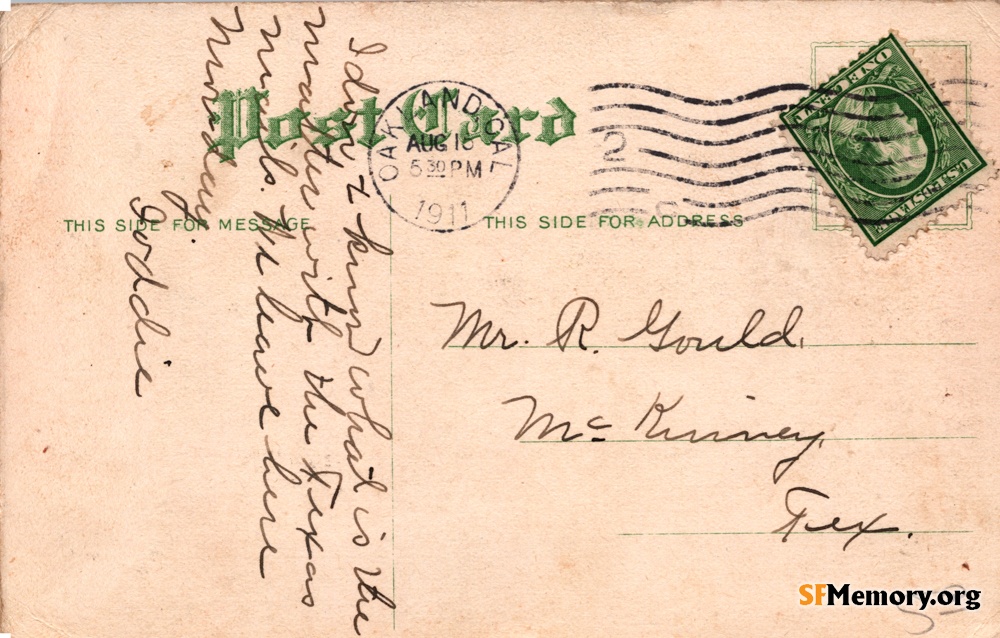 Post Card
THIS SIDE FOR MESSAGE
THIS SIDE FOR ADDRESS
OAKLAND, CAL
AUG 16
5 30 PM
1911
2
U.S. POSTAGE
I don't know what is the
matter with the Texas
mails. I'll leave here
Monday
Mr. R. Gould.
McKinney,
Tex.
SFMemory.org